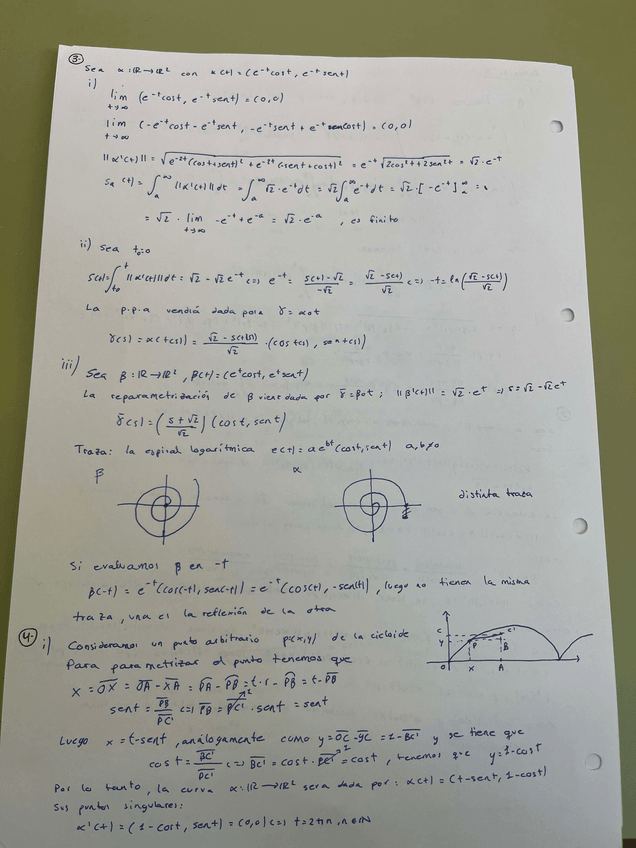 3.
Sea α: ℝ→ℝ² con α(t) = (e^-t cost, e^-t sent)
i)
lim t→∞ (e^-t cost, e^-t sent) = (0,0)
lim t→∞ (-e^-t cost - e^-t sent, -e^-t sent + e^-t cost) = (0,0)
||α'(t)|| = √(e^-2t (cost+sent)² + e^-2t (-sent+cost)²) = e^-t √(2cos²t + 2sen²t) = √2 · e^-t
Sa (t) = ∫_a^∞ ||α'(t)|| dt = ∫_a^∞ √2 · e^-t dt = √2 ∫_a^∞ e^-t dt = √2 · [-e^-t]_a^∞ =
= √2 · lim t→∞ -e^-t + e^-a = √2 · e^-a, es finito
ii) Sea t₀=0
S(t) = ∫_t₀^t ||α'(t)|| dt = √2 - √2 e^-t <=> e^-t = (S(t) - √2)/(-√2) = (√2 - S(t))/√2 <=> -t = ln((√2 - S(t))/√2)
La p.p.a vendrá dada por γ = α∘t
γ(s) = α(t(s)) = (√2 - S(t(s)))/√2 · (cos t(s), sen t(s))
iii) Sea β: ℝ→ℝ², β(t) = (e^t cost, e^t sent)
La reparametrización de β viene dada por γ̄ = β∘t ; ||β'(t)|| = √2 · e^t => s = √2 - √2 e^t
γ̄(s) = ((s + √2)/√2) (cost, sent)
Traza: la espiral logarítmica e(t) = a e^bt (cost, sent) a, b ≠ 0
β α
distinta traza
Si evaluamos β en -t
β(-t) = e^-t (cos(-t), sen(-t)) = e^-t (cos(t), -sen(t)), luego no tienen la misma
traza, una es la reflexión de la otra
4. i) Consideramos un punto arbitrario p(x,y) de la cicloide
Para parametrizar el punto tenemos que
C C'
y P B
0 x A
X = OX = OA - XA = PA - PB = t·r - PB = t - PB
sent = PB/PC' <=> PB = PC' · sent = sent
Luego x = t - sent, análogamente como y = OC - yC = 1 - BC' y se tiene que
cost = BC'/PC' <=> BC' = cost · PC' = cost, tenemos que y = 1 - cost
1
Por lo tanto, la curva α: ℝ→ℝ² será dada por: α(t) = (t - sent, 1 - cost)
Sus puntos singulares:
α'(t) = (1 - cost, sent) = (0,0) <=> t = 2πn, n∈ℕ